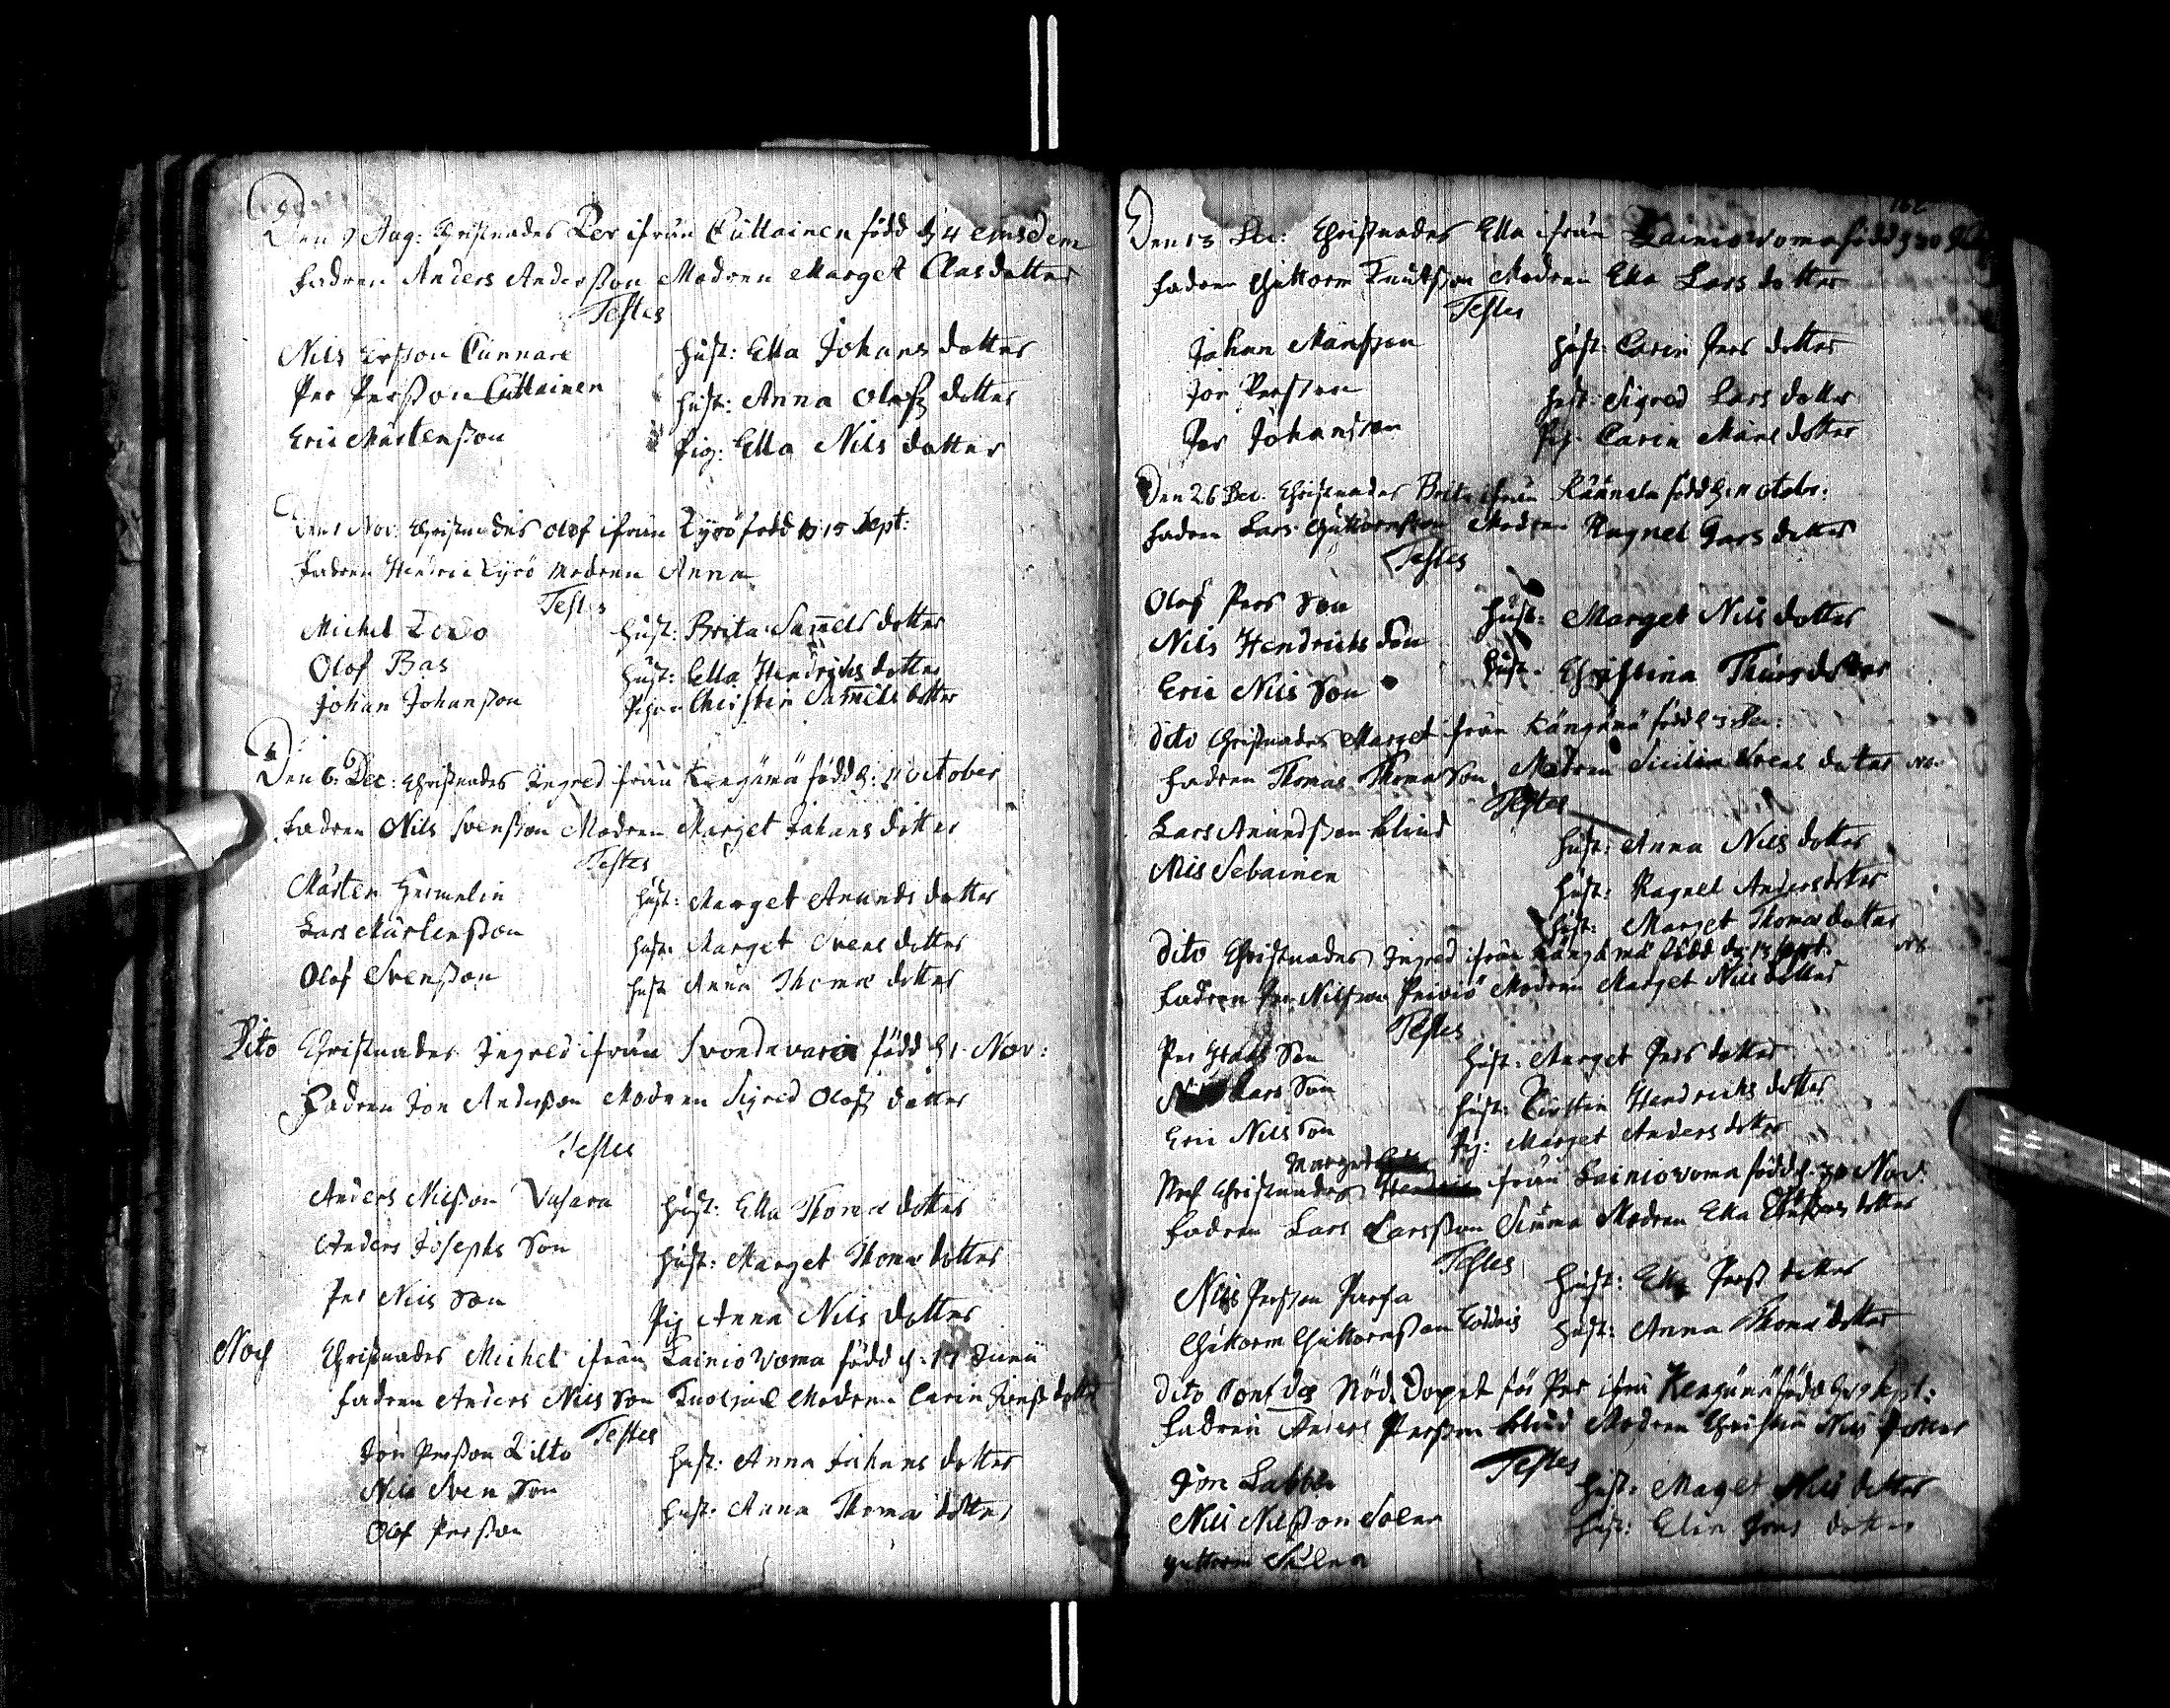 Den 9 Aug: Christnades Per ifrån Cuttainen född d 4 eiusdem
fadren Anders Andersson Modren Marget Clas dotter
Testes
Nils Ersson Cunnare
hust: Ella Johans dotter
Per Persson Cuttainen
hust: Anna Olofz dotter
Eric Mårtensson
Pig: Ella Nils dotter
Den 1 Nov: Christnades Olof ifrån Kyrö född d 15 Sept:
fadren Hendric Kyrö modren Anna
Testes
Michel
hust: Brita Samels dotter
Olof Bas
hust: Ella Hendrichs dotter
Johan Johansson
Christin Samels dotter
Den 6. Dec: Christnades Ingred ifrån Kengämä född d: 11 October
fadren Nils Svensson Modren Marget Johans dotter
Testes
Mårten Hermelin
hust: Marget Anunds dotter
Lars Mårtensson
hust: Marget Svens dotter
Olof Svensson
hust Anna Thomæ dotter
Dito Christnades Ingred ifrån Svondavara född d 1. Nov:
Fadren Jon Andersson Modren Sigred Olofz dotter
Testes
Anders Nilsson Vasara
hust: Ella Thomæ dotter
Anders Josephs Son
hust: Marget Thomæ dotter
Per Nils Son
Pig Anna Nils dotter
Noch Christnades Michel ifrån Lainiovoma född d. 17 Junii
fadren Anders Nils Son Modren Carin dotter
Testes
Jon Persson
hust: Anna Johans dotter
Nils Sven Son
hust: Anna Thomæ dotter
Olof Persson
Den 13 Dec: Christnades Ella ifrån Lainiovoma född d 30
fadren Guttorm Knutsson Modren Ella Lars dotter
Testes
Johan Månsson
hust: Carin Pers dotter
Jon Persson
hust: Sigred Lars dotter
Per Johansson
Pig: Carin Måns dotter
Den 26 Dec: Christnades Brita ifrån född d: 11 Octobr:
fadren Lars Guttormsson Modren Ragnel Lars dotter
Testes
Olof Pers Son
hust: Marget Nils dotter
Nils Hendrichs Son
hust: Christina Thurs dotter
Eric Nils Son
Dito Christnades Marget ifrån Kängämä född d 3 Dec:
fadren Thomas Thomæ Son Modren Sicilia Svens dotter
Testes
Lars Anundsson blind
hust: Anna Nils dotter
Nils Sebainen
hust: Ragnel Anders dotter
hust: Marget Thomæ dotter
Dito Christnades Ingred ifrån Kängämä född d: 13 Sept:
fadren Per Nilsson Peiviö Modren Marget Nils dotter
Testes
Per Son
hust: Marget Pers dotter
Lars Son
hust: Kirstin Hendrichs dotter
Eric Nils Son
Pig: Marget Anders dotter
Marget
Noch Christnades ifrån Lainiovoma född d. 30 Nov:
fadren Lars Larsson Simma Modren Ella dotter
Testes
Nils Persson
hust: Ella Perss dotter
Guttorm Guttormsson
hust: Anna Thomæ dotter
Dito Nöd Dopet för Per ifrån Kengämä född d: 9 Sept:
fadren Anders Persson blind Modren Christin Nils dotter
Testes
Jon Labba
hust: Maget Nils dotter
Nils Nilsson
hust: Elin Jons dotter
Guttorm